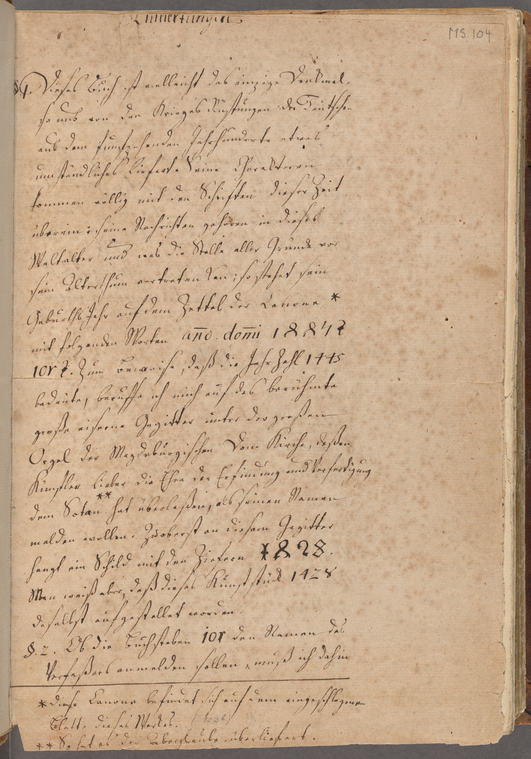 Anmerkungen
MS 104
§ 1. Dieses Buch ist vielleicht das einzige Denkmal,
so uns von den Krieges Rüstungen der Teutschen
aus dem funfzehenden Jahrhunderte etwas
umständliches liefert. Seine Charakteren
kommen völlig mit den Schriften dieser Zeit
überein; seine Nachrichten gehören in dieses
Weltalter und was die Stelle aller Gründe vor
sein Alterthum vertreten kan; so stehet sein
Geburths Jahr auf dem Zettel der Canone *
mit folgenden Worten año domi
Zum Beweise, daß die Jahr Zahl 1445
bedeute, beruffe ich mich auf das berühmte
große eiserne Gegitter unter der großen
Orgel der Magdeburgischen Dom Kirche, deßen
Künstler lieber die Ehre der Erfindung und Verfertigung
dem Satan ** hat überlaßen, als seinen Namen
melden wollen. Zuoberst an diesem Gegitter
hangt ein Schild mit den Ziefern
Man weiß aber, daß dieses Kunststük 1428
daselbst aufgestellet worden.
§ 2. Ob die Buchstaben ior den Namen des
Verfaßers anmelden sollen, muß ich dahin
* diese Canone befindet sich auf dem eingeschlagenen
Blatt dieses Werkes.
** So hat es der Aberglaube überliefert.